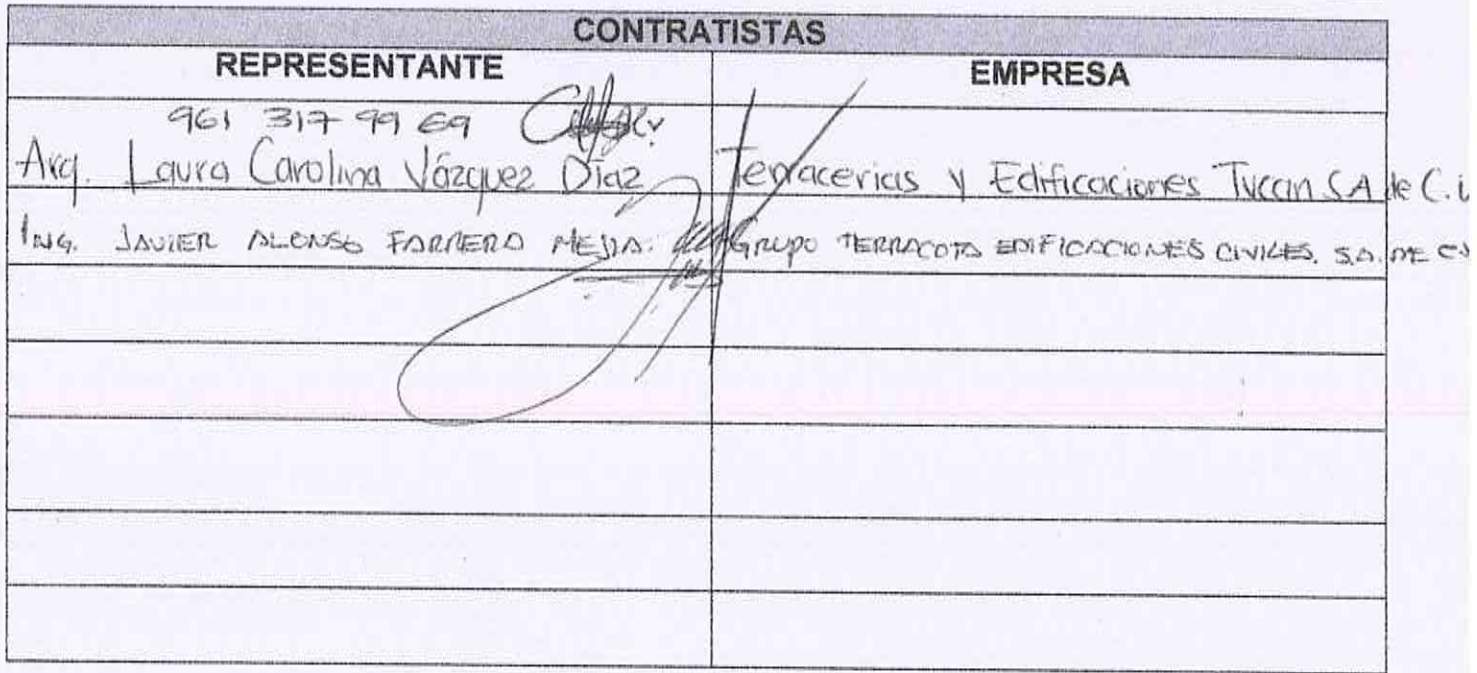 CONTRATISTAS
REPRESENTANTE EMPRESA
961 317 99 69
Arq. Laura Carolina Vázquez Díaz Terracerias y Edificaciones Tuccan S.A de C.V
ING. JAVIER ALONSO FARRERA MEJIA. GRUPO TERRACOTA EDIFICACIONES CIVILES. S.A. DE CV